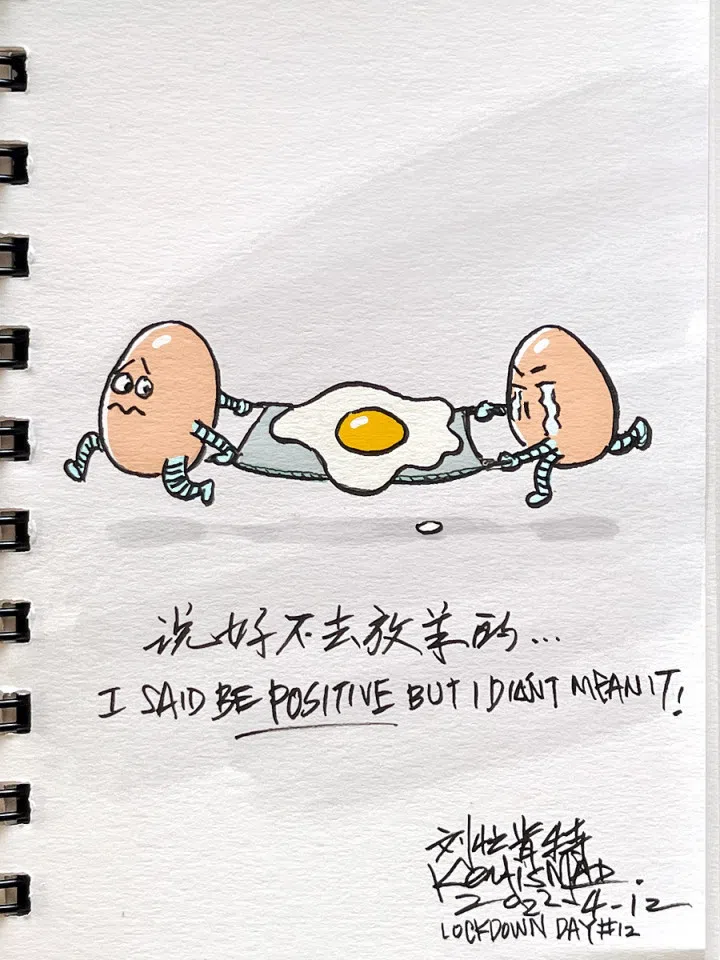 说好不去放羊的...
I SAID BE POSITIVE BUT I DIDN'T MEAN IT!
刘壮肯特
KentisMAD.
2022-4-12
LOCKDOWN DAY#12